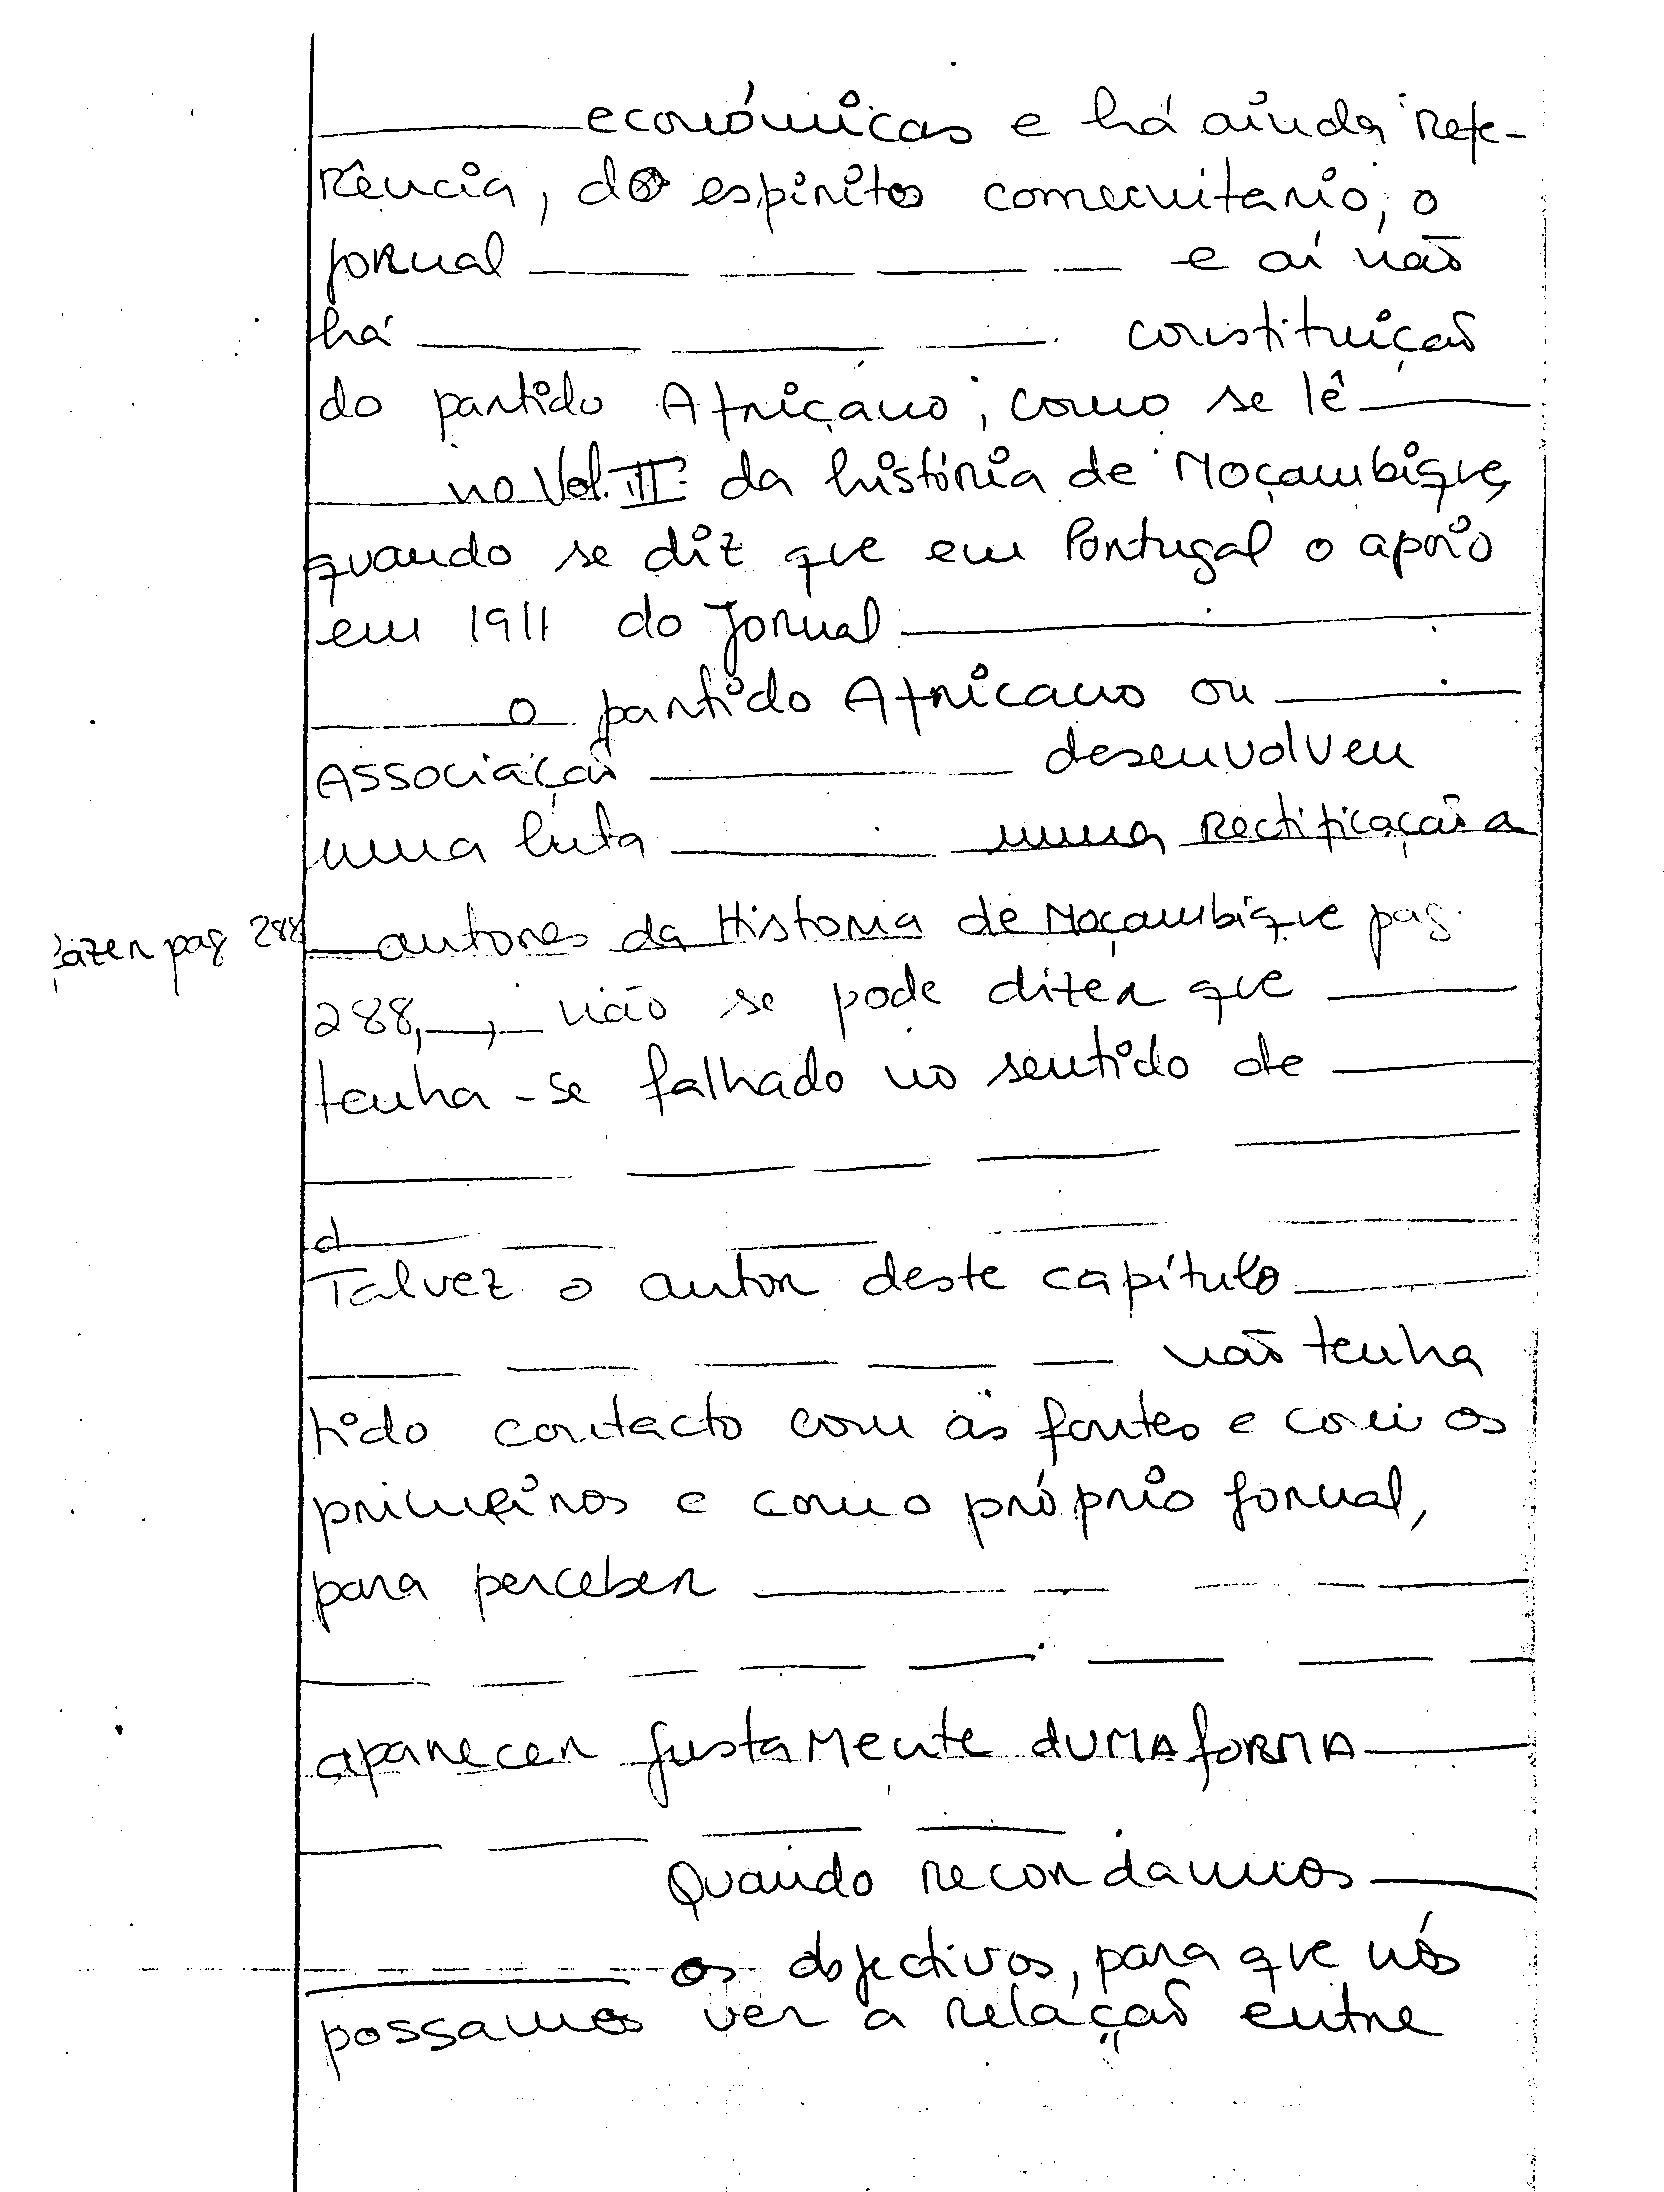 ______ económicas e há ainda Refe-
Rência, do espirito comunitario, o
jornal ____ ____ ____ __ e aí não
há ____ ____ ____ constituição
do partido Africano, como se lê ____
____ no Vol. III da história de Moçambique,
quando se diz que em Portugal o apoio
em 1911 do Jornal ________
____ o partido Africano ou ____
Associação ________ desenvolveu
uma luta ____ numa Rectificação a
fazer pag 288
__ autores da Historia de Moçambique pag.
288, __,__ não se pode dizer que ____
tenha-se falhado no sentido de ____
____ ____ ____ ____ ____
d____ ____ ____ ____ ____
Talvez o autor deste capítulo ____
____ ____ ____ ____ ____ não tenha
tido contacto com as fontes e com os
primeiros e com o próprio jornal,
para perceber ____ __ __ __ ____
____ ____ ____ ____ ____ ____ ____ __
aparecer justaMente dUMA foRMA ____
____ ____ ____ ____
Quando recordamos ____
________ os objectivos, para que nós
possamos ver a relação entre